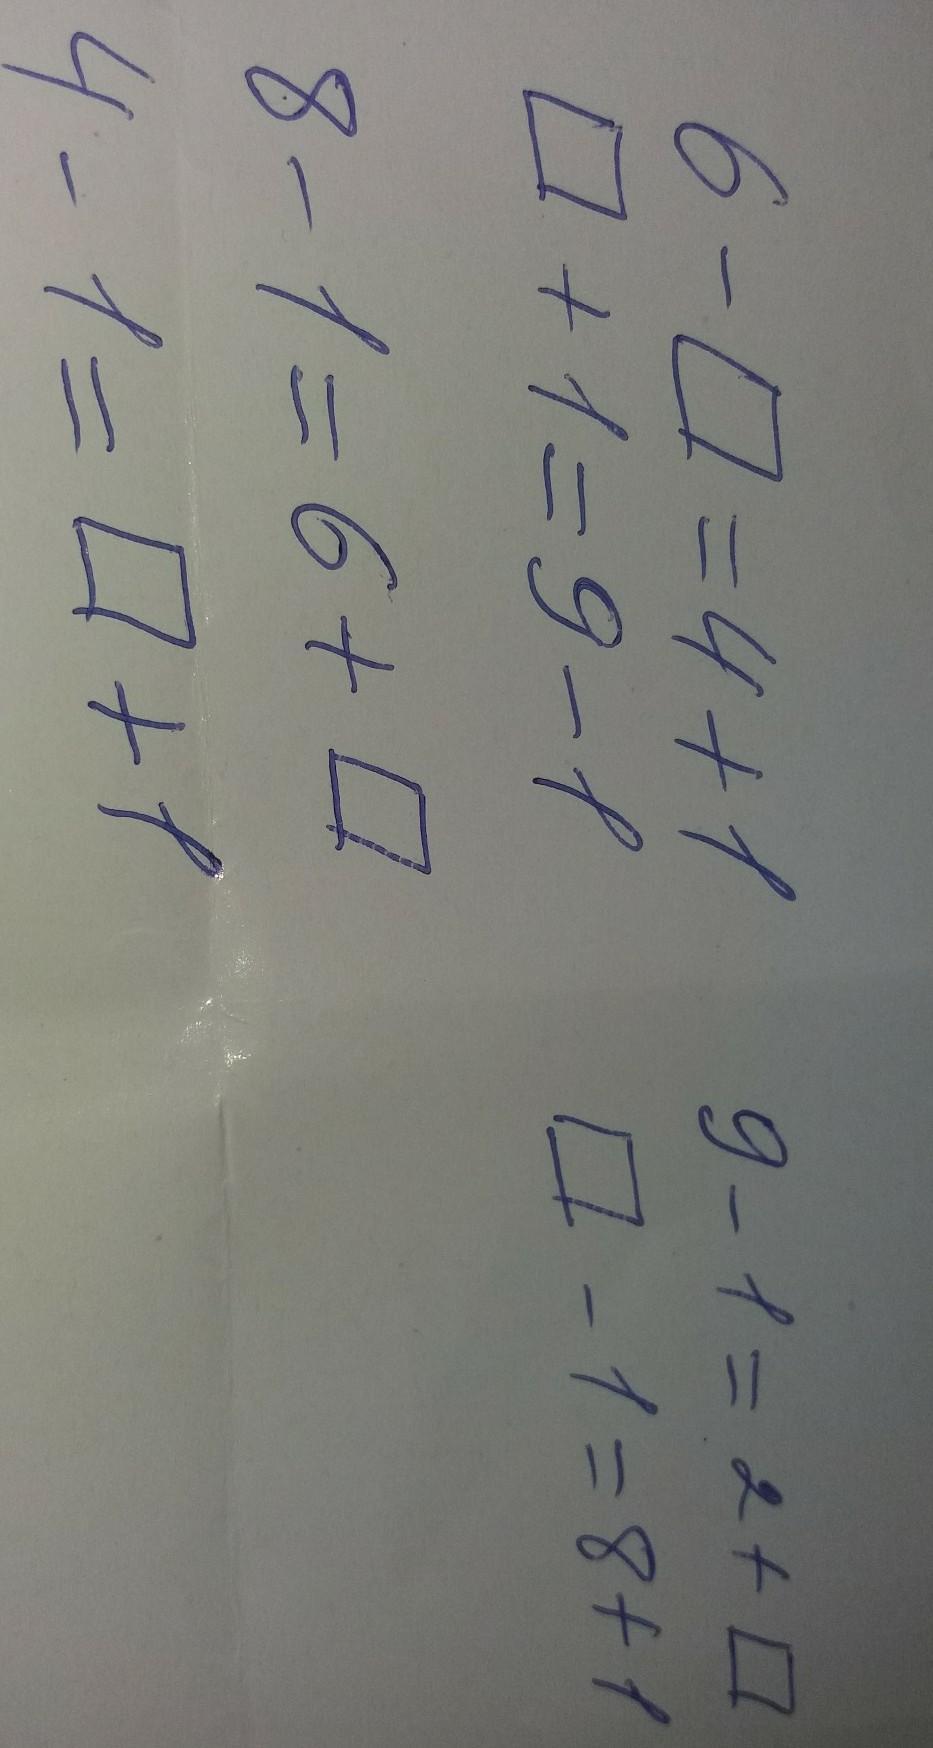 6 - □ = 4 + 1
□ + 1 = 9 - 1
8 - 1 = 6 + □
4 - 1 = □ + 1
9 - 1 = 2 + □
□ - 1 = 8 + 1